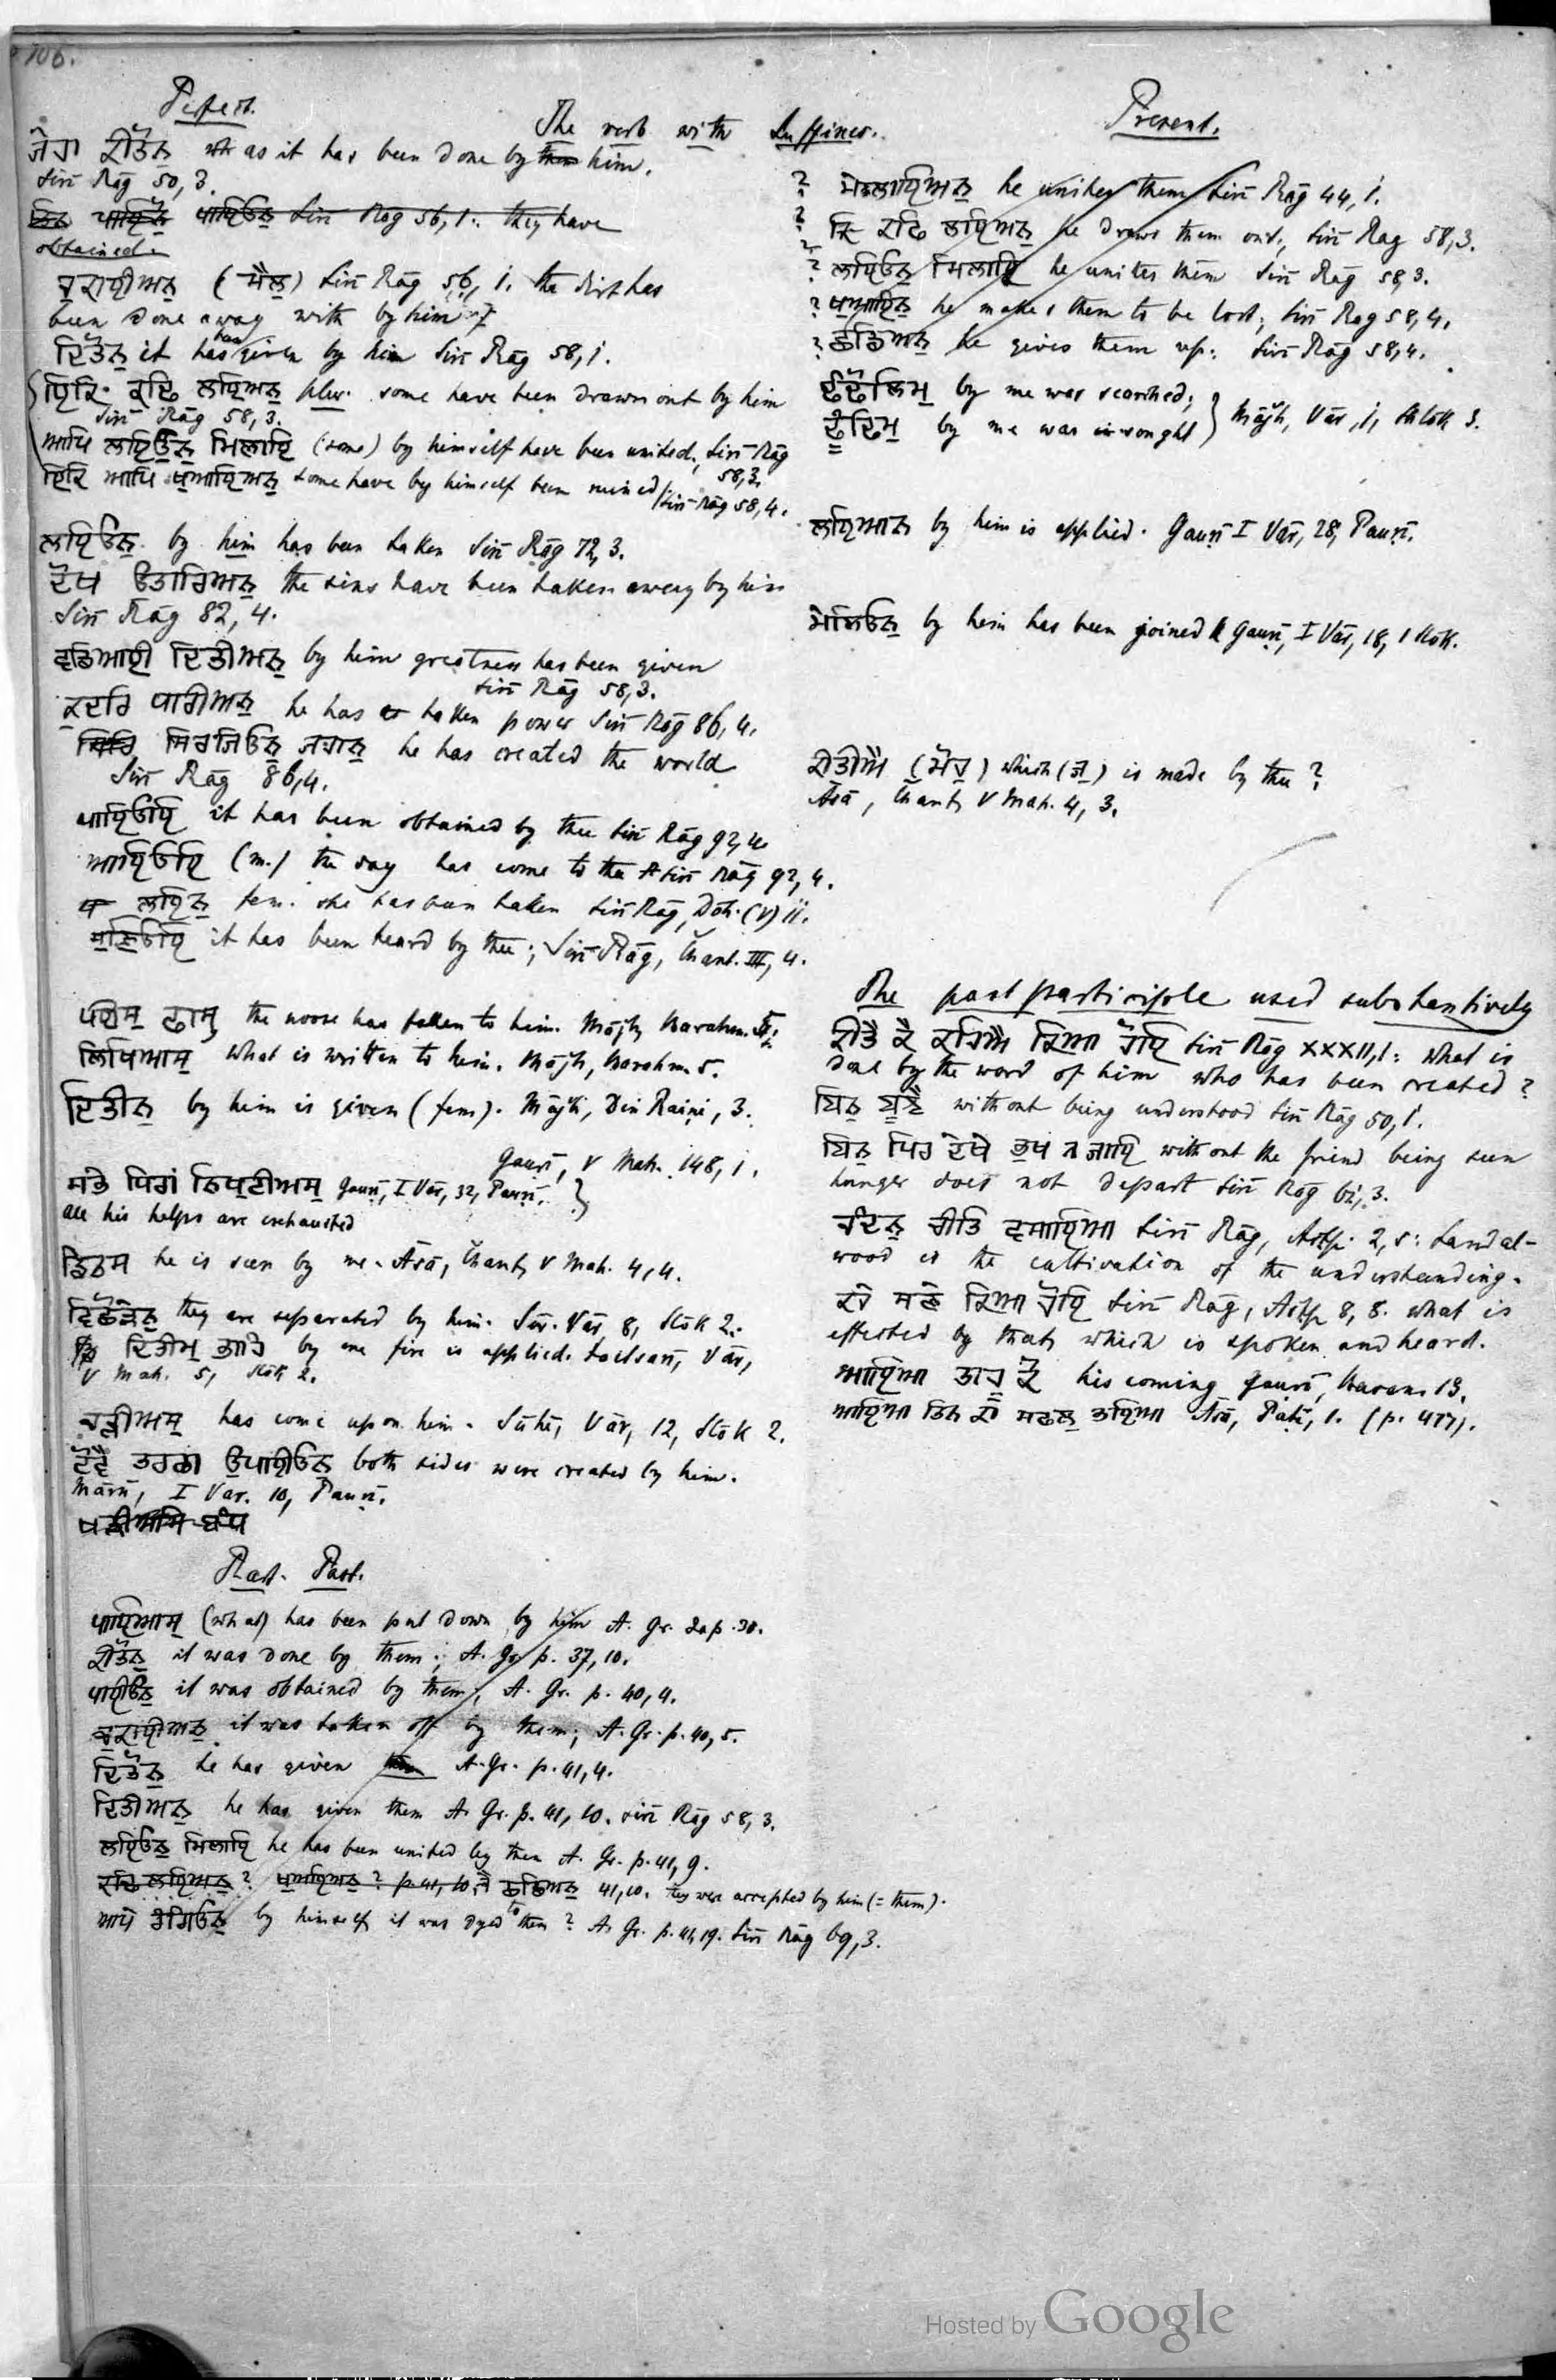 106.
The verb with Suffixes.
Perfect.
ਜੇਹਾ ਕੀਤੋਨੁ as it has been done by him.
Siri Rāg 50, 3.
ਪਾਇਓਨੁ Siri Rāg 56, 1. they have
obtained.
ਚੁਕਾਈਅਨੁ (ਮੈਲੁ) Siri Rāg 56, 1. the dirt has
been done away with by him
ਦਿਤੋਨੁ it has been given by him Siri Rāg 58, 1.
ਇਕਿ ਕਢਿ ਲਇਅਨੁ plur. some have been drawn out by him
Siri Rāg 58, 3.
ਆਪਿ ਲਇਓਨੁ ਮਿਲਾਇ (some) by himself have been united, Siri Rāg
58, 3.
ਇਕਿ ਆਪਿ ਖੁਆਇਅਨੁ some have by himself been ruined Siri Rāg 58, 4.
ਲਇਓਨੁ by him has been taken Siri Rāg 72, 3.
ਦੋਖ ਉਤਾਰਿਅਨੁ the sins have been taken away by him
Siri Rāg 82, 4.
ਵਡਿਆਈ ਦਿਤੀਅਨੁ by him greatness has been given
Siri Rāg 58, 3.
ਕੁਦਰਿ ਧਾਰੀਅਨੁ he has taken power Siri Rāg 86, 4.
ਸਿਰਜਿਓਨੁ ਜਹਾਨੁ he has created the world
Siri Rāg 86, 4.
ਪਾਇਓਇ it has been obtained by thee Siri Rāg 92, 4.
ਆਇਓਇ (m.) the day has come to thee Siri Rāg 92, 4.
ਲਇਨੁ fem. she has been taken Siri Rāg, Doh. (V) ii.
ਸੁਣਿਓਇ it has been heard by thee; Siri Rāg, Čhant. III, 4.
ਪਈਸੁ ਫਾਸੁ the noose has fallen to him. Mājh, Barahm.
ਲਿਖਿਆਸੁ what is written to him. Mājh, Barahm. 5.
ਦਿਤੀਨੁ by him is given (fem). Mājh, Din Raiṇi, 3.
Gauṛī, V Mah. 148, 1.
ਸਭੇ ਧਿਰਾਂ ਨਿਖੁਟੀਅਸੁ Gauṛī, I Vār, 32, Pauṛī.
all his helps are exhausted
ਡਿਠਮ he is seen by me. Āsā, Čhant, V Mah. 4, 4.
ਵਿਛੋੜੇਨੁ they are separated by him. Sir. Vār 8, Slōk 2.
ਦਿਤੀਮੁ ਭਾਹੇ by me fire is applied. Vār,
V Mah. 5, Slōk 2.
ਚੜੀਅਸੁ has come upon him. Sūhī, Vār, 12, Slōk 2.
ਦੋਵੈ ਤਰਫਾ ਉਪਾਈਓਨੁ both sides were created by him.
Mārū, I Var. 10, Pauṛī.
Past. Part.
ਪਾਇਆਸੁ (what) has been put down by him A. Gr. Jap. 30.
ਕੀਤੋਨੁ it was done by them; A. Gr. p. 37, 10.
ਪਾਈਓਨੁ it was obtained by them; A. Gr. p. 40, 4.
ਚੁਕਾਈਅਨੁ it was taken off by them; A. Gr. p. 40, 5.
ਦਿਤੋਨੁ he has given A. Gr. p. 41, 4.
ਦਿਤੀਅਨੁ he has given them A. Gr. p. 41, 10. Siri Rāg 58, 3.
ਲਇਓਨੁ ਮਿਲਾਇ he has been united by them A. Gr. p. 41, 9.
ਕਢਿ ਲਇਅਨੁ? ਖੁਆਇਅਨੁ? p. 41, 10. ਛਡਿਅਨੁ 41, 10. they were accepted by him (= them).
ਆਪੇ ਰੰਗਿਓਨੁ by himself it was dyed to them? A. Gr. p. 41, 19. Siri Rāg 69, 3.
Present.
? ਮੇਲਾਇਅਨੁ he unites them Siri Rāg 44, 1.
? ਕਢਿ ਲਇਅਨੁ he draws them out; Siri Rāg 58, 3.
? ਲਇਓਨੁ ਮਿਲਾਇ he unites them Siri Rāg 58, 3.
? ਖੁਆਇਨੁ he makes them to be lost; Siri Rāg 58, 4.
? ਛਡਿਅਨੁ he gives them up: Siri Rāg 58, 4.
ਢੰਢੋਲਿਮੁ by me was searched;
ਢੂੰਢਿਮੁ by me was sought } Mājh, Vār, 1, Shlōk 3.
ਲਇਆਨੁ by him is applied. Gauṛī I Vār, 28, Pauṛī.
ਮੇਲਿਓਨੁ by him has been joined Gauṛī, I Vār, 18, 1 Slok.
ਕੀਤੀਐ (ਮੋਹੁ) which (ਜੁ) is made by thee?
Āsā, Čhant, V Mah. 4, 3.
The past participle used substantively
ਕੀਤੈ ਕੈ ਕਹਿਐ ਕਿਆ ਹੋਇ Siri Rāg XXXII, 1: what is
done by the word of him who has been created?
ਬਿਨੁ ਬੁਝੈ without being understood Siri Rāg 50, 1.
ਬਿਨੁ ਪਿਰ ਦੇਖੇ ਭੁਖ ਨ ਜਾਇ without the friend being seen
hunger does not depart Siri Rāg 61, 3.
ਚੰਦਨੁ ਚੀਤਿ ਵਸਾਇਆ Siri Rāg, Astp. 2, 5: Sandal-
wood is the cultivation of the understanding.
ਕਹੇ ਸੁਣੇ ਕਿਆ ਹੋਇ Siri Rāg, Astp 8, 8. what is
effected by that, which is spoken and heard.
ਆਇਆ ਤਾਹੂ ਕੋ his coming Gauṛī, 13.
ਆਇਆ ਤਿਨ ਕਾ ਸਫਲੁ ਭਇਆ Āsā, Paṭī, 1. (p. 477).
Hosted by Google